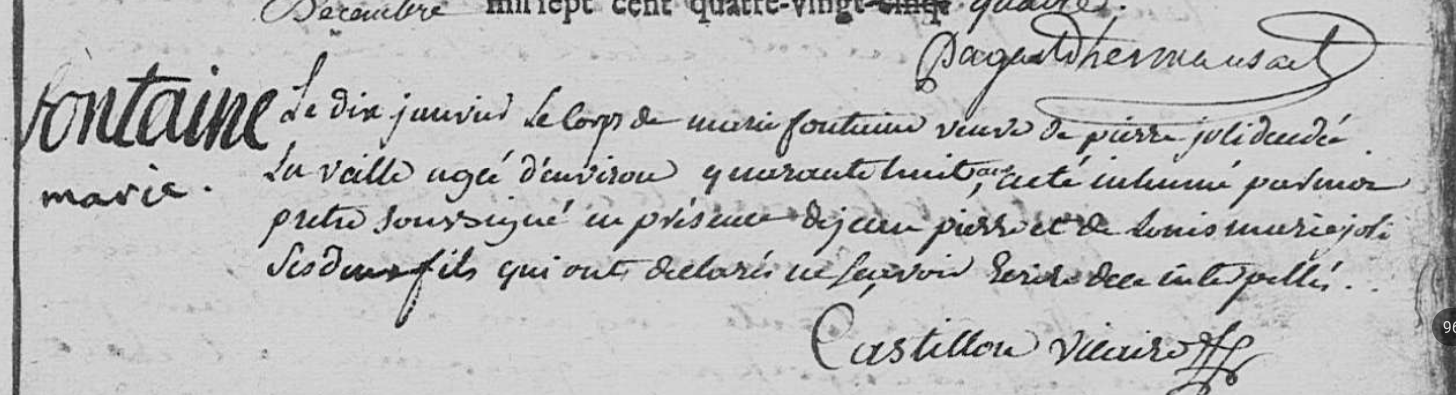 Decembre mil sept cent quatre-vingt-cinq quatre.
Pagès Dhermansart
fontaine
marie.
Le dix janvier le corps de marie fontaine veuve de pierre joli decedé
La veille agée d'environ quarante huit ans, a eté inhumé par moi
pretre soussigné en présence de jean pierre et de Louis marie joli
Ses deux fils qui ont declarés ne sçavoir Ecrire de ce interpellés..
Castillon vicaire
96